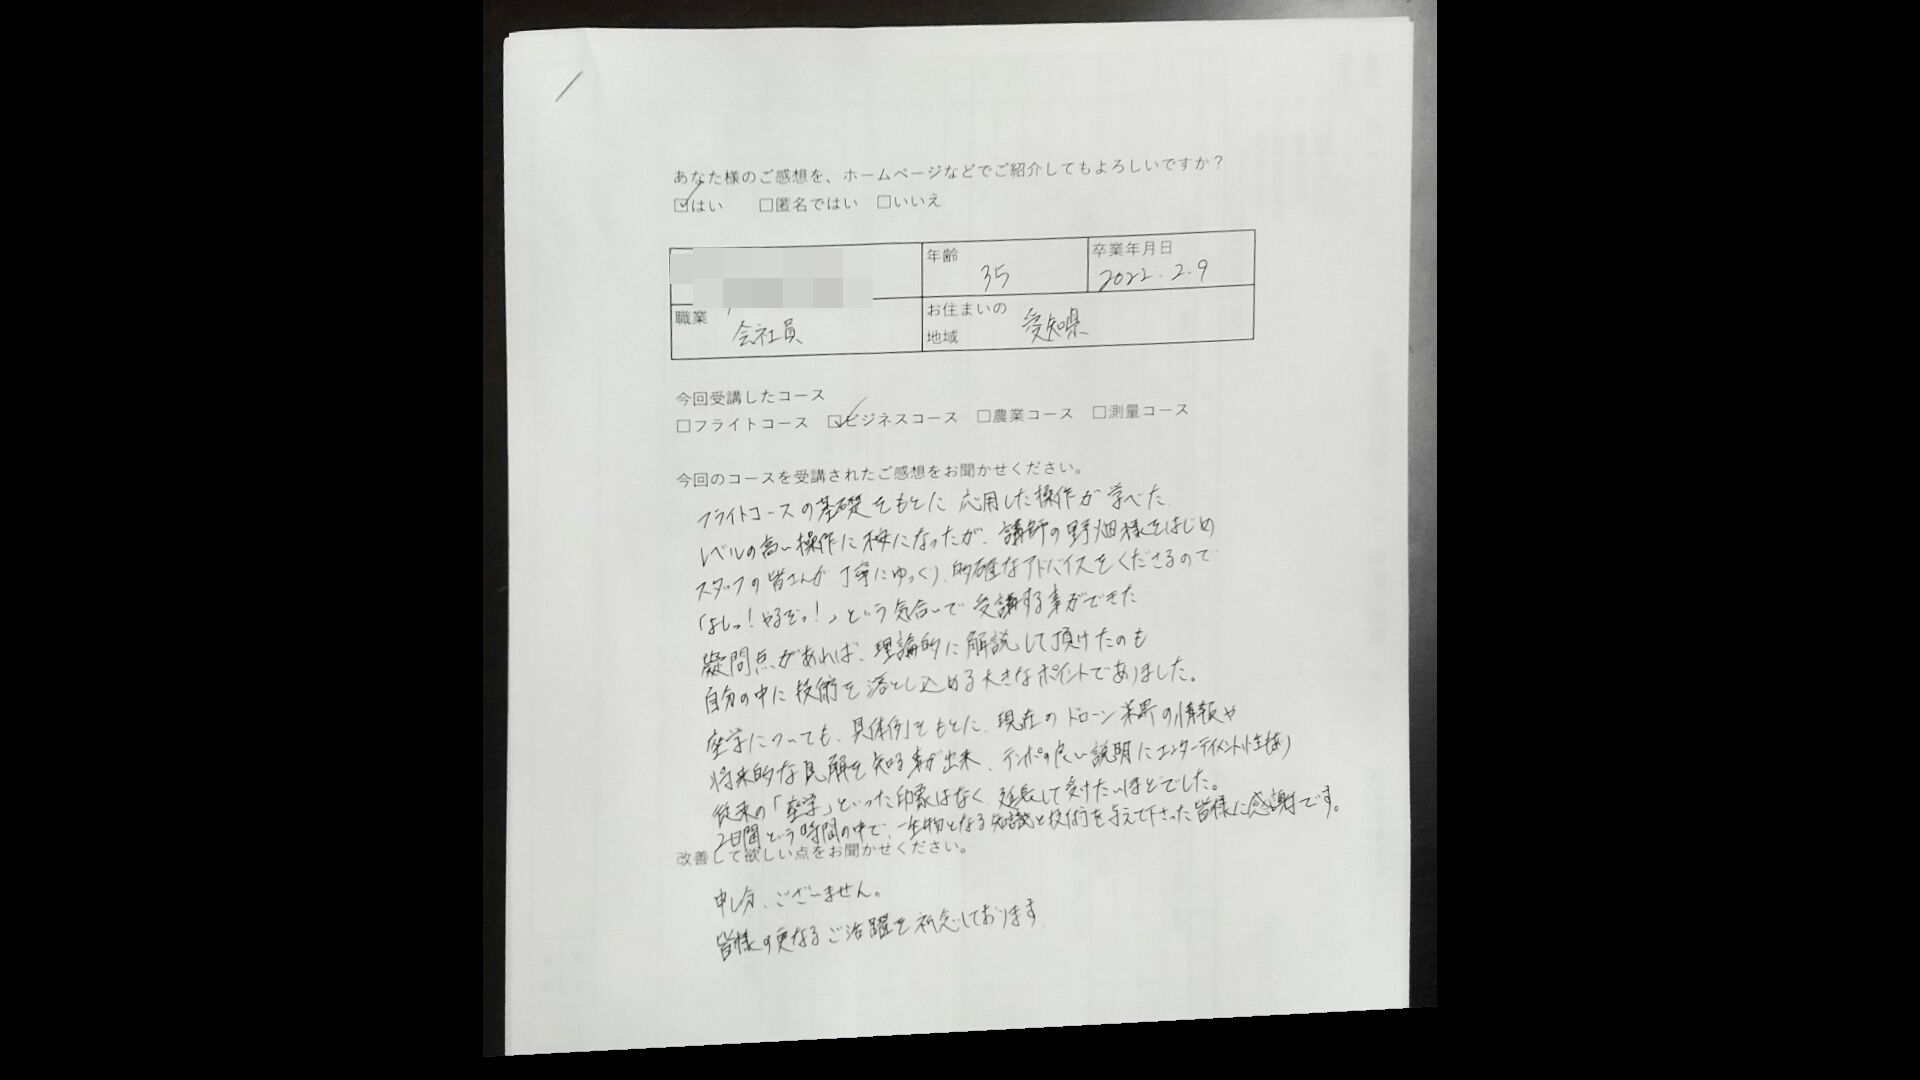 あなた様のご感想を、ホームページなどでご紹介してもよろしいですか？
☑はい □匿名ではい □いいえ
年齢 35
卒業年月日 2022.2.9
職業 会社員
お住まいの地域 愛知県
今回受講したコース
□フライトコース ☑ビジネスコース □農業コース □測量コース
今回のコースを受講されたご感想をお聞かせください。
フライトコースの基礎をもとに応用した操作が学べた
レベルの高い操作に なったが、講師の野畑様をはじめ
スタッフの皆さんが丁寧にゆっくり、的確なアドバイスをくださるので
「よしっ！やるぞっ！」という気合いで受講する事ができた
疑問点があれば、理論的に解説して頂けたのも
自分の中に技術を落とし込める大きなポイントでありました。
座学についても、具体例をもとに、現在のドローン業界の情報や
将来的な見解を知る事が出来、テンポの良い説明にエンターテイメント性もあり
従来の「座学」といった印象はなく、延長して受けたいほどでした。
2日間という時間の中で、一生物となる知識と技術を与えて下さった皆様に感謝です。
改善して欲しい点をお聞かせください。
申し分、ございません。
皆様の更なるご活躍を祈念しております